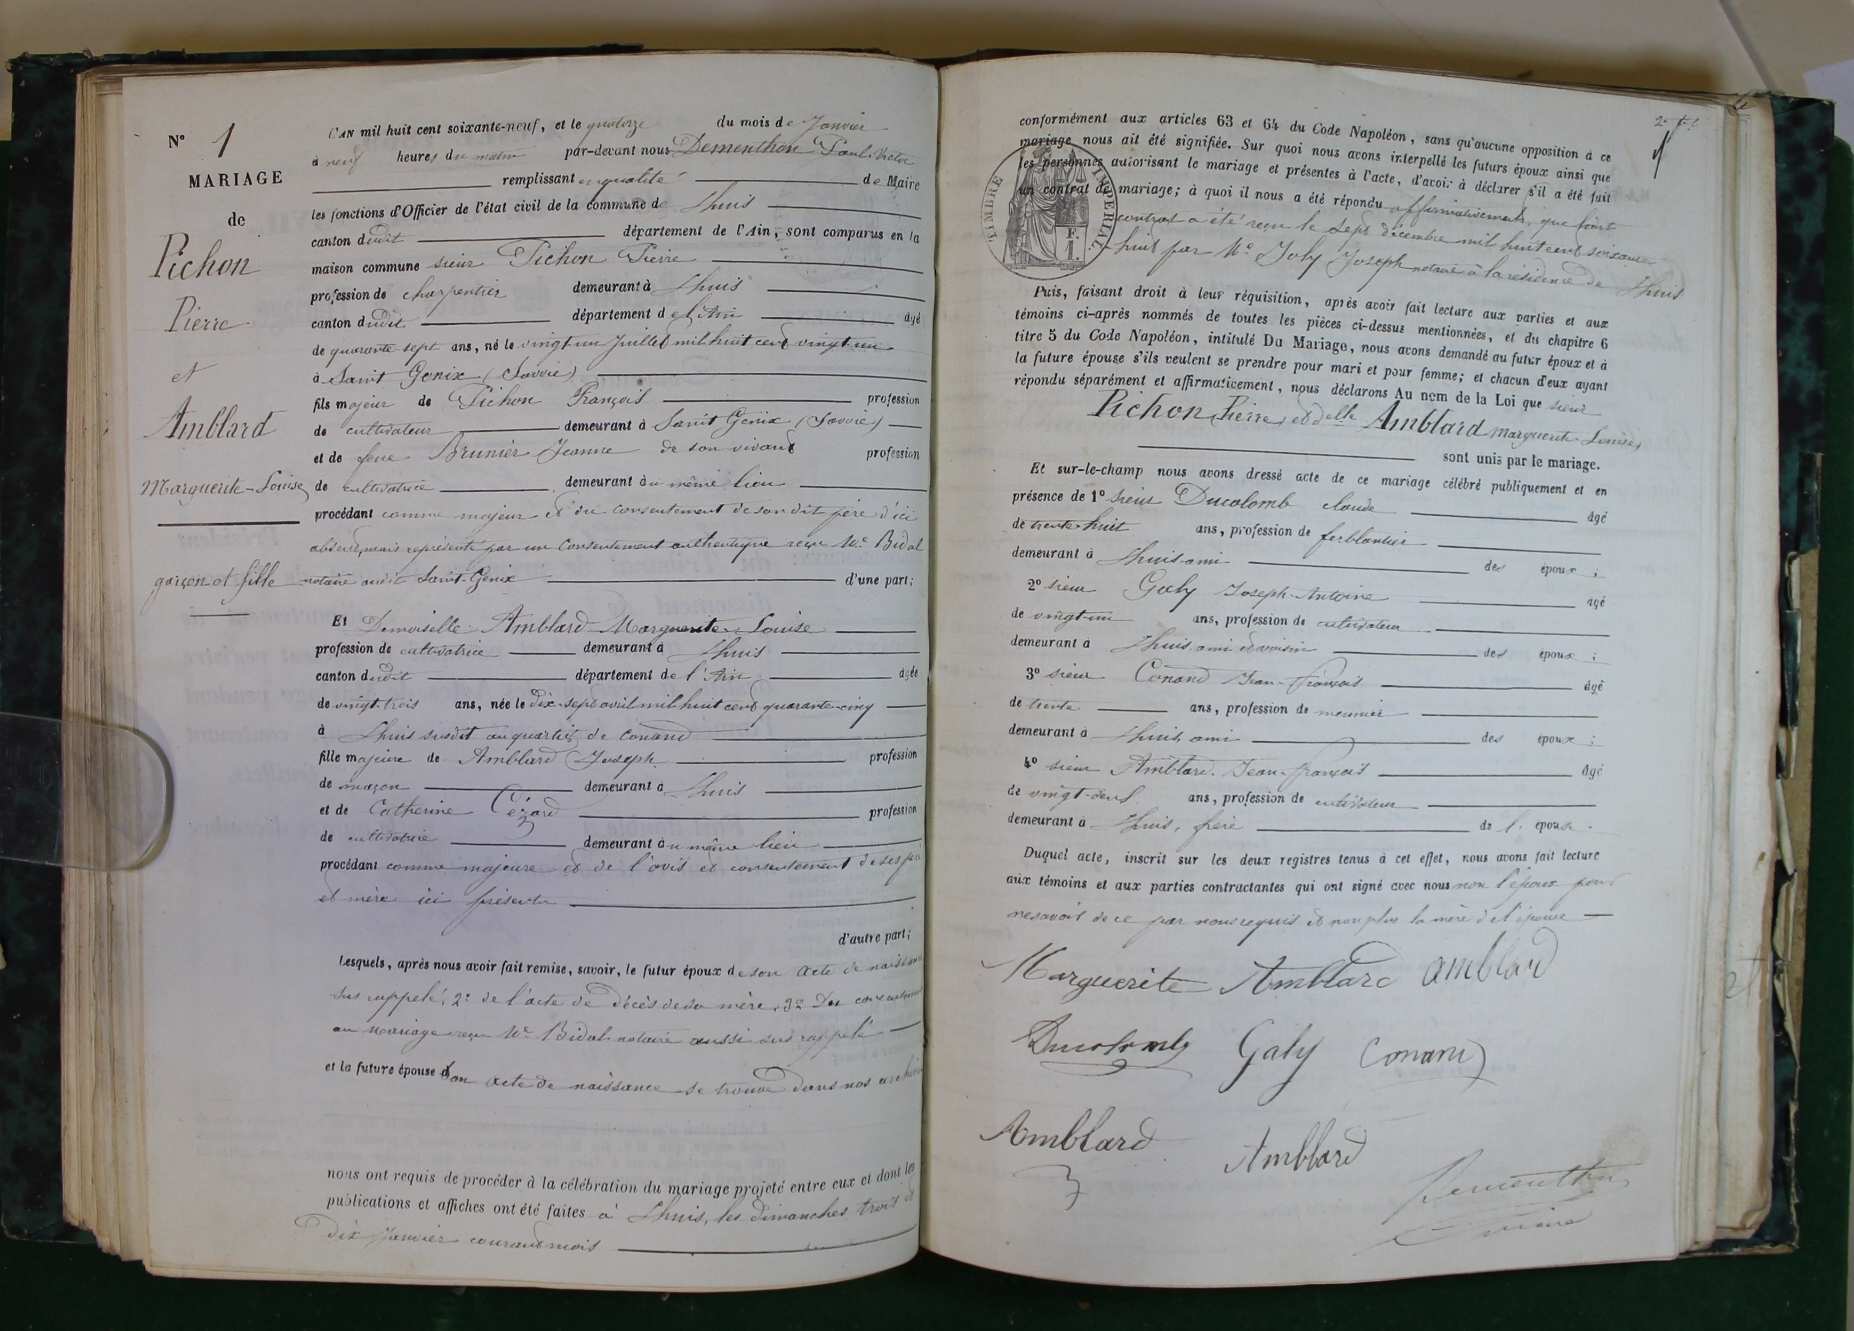 N° 1
MARIAGE
de
Pichon
Pierre
et
Amblard
Marguerite-Louise
garçon et fille
L'AN mil huit cent soixante-neuf, et le quatorze du mois de Janvier
à neuf heures du matin par-devant nous Dementhon Paul Victor
remplissant en qualité de Maire
les fonctions d'Officier de l'état civil de la commune de Lhuis
canton dudit département de l'Ain, sont comparus en la
maison commune sieur Pichon Pierre
profession de charpentier demeurant à Lhuis
canton dudit département de l'Ain âgé
de quarante sept ans, né le vingt un Juillet mil huit cent vingt un
à Saint Genix (Savoie)
fils majeur de Pichon François profession
de cultivateur demeurant à Saint Genix (Savoie)
et de feue Brunier Jeanne de son vivant profession
de cultivatrice demeurant au même lieu
procédant comme majeur et du consentement de son dit père d'ici
absent, mais représenté par un consentement authentique reçu Me Bidal
notaire audit Saint-Genix d'une part;
Et Demoiselle Amblard Marguerite-Louise
profession de cultivatrice demeurant à Lhuis
canton dudit département de l'Ain âgée
de vingt-trois ans, née le dix-sept avril mil huit cent quarante-cinq
à Lhuis susdit au quartier de Conand
fille majeure de Amblard Joseph profession
de maçon demeurant à Lhuis
et de Catherine Cézard profession
de cultivatrice demeurant au même lieu
procédant comme majeure et de l'avis et consentement de ses père
et mère ici présents
d'autre part;
Lesquels, après nous avoir fait remise, savoir, le futur époux de son acte de naissance
sus rappelé, 2° de l'acte de décès de sa mère, 3° Du consentement
au mariage reçu Me Bidal notaire aussi sus rappelé
et la future épouse son acte de naissance se trouve dans nos archives
nous ont requis de procéder à la célébration du mariage projeté entre eux et dont les
publications et affiches ont été faites à Lhuis, les dimanches trois et
dix Janvier courant mois
conformément aux articles 63 et 64 du Code Napoléon, sans qu'aucune opposition à ce
mariage nous ait été signifiée. Sur quoi nous avons interpellé les futurs époux ainsi que
les personnes autorisant le mariage et présentes à l'acte, d'avoir à déclarer s'il a été fait
un contrat de mariage; à quoi il nous a été répondu affirmativement, que
contrat a été reçu le sept décembre mil huit cent soixante
huit par Me Joly Joseph notaire à la résidence de Lhuis
TIMBRE IMPÉRIAL
F.
1.
Puis, faisant droit à leur réquisition, après avoir fait lecture aux parties et aux
témoins ci-après nommés de toutes les pièces ci-dessus mentionnées, et du chapitre 6
titre 5 du Code Napoléon, intitulé Du Mariage, nous avons demandé au futur époux et à
la future épouse s'ils veulent se prendre pour mari et pour femme; et chacun d'eux ayant
répondu séparément et affirmativement, nous déclarons Au nom de la Loi que sieur
Pichon Pierre, et dlle Amblard Marguerite Louise,
sont unis par le mariage.
Et sur-le-champ nous avons dressé acte de ce mariage célébré publiquement et en
présence de 1° sieur Ducolomb claude âgé
de trente huit ans, profession de ferblantier
demeurant à Lhuis ami des époux;
2° sieur Galy Joseph-Antoine âgé
de vingt-un ans, profession de cultivateur
demeurant à Lhuis ami et voisin des époux;
3° sieur Conand Jean-François âgé
de trente ans, profession de meunier
demeurant à Lhuis, ami des époux;
4° sieur Amblard Jean-François âgé
de vingt-deux ans, profession de cultivateur
demeurant à Lhuis, frère de l'épouse.
Duquel acte, inscrit sur les deux registres tenus à cet effet, nous avons fait lecture
aux témoins et aux parties contractantes qui ont signé avec nous non l'époux pour
ne savoir de ce par nous requis et non plus la mère de l'épouse
Marguerite Amblard Amblard
Ducolomb Galy Conand
Amblard Amblard
Dementhon
maire